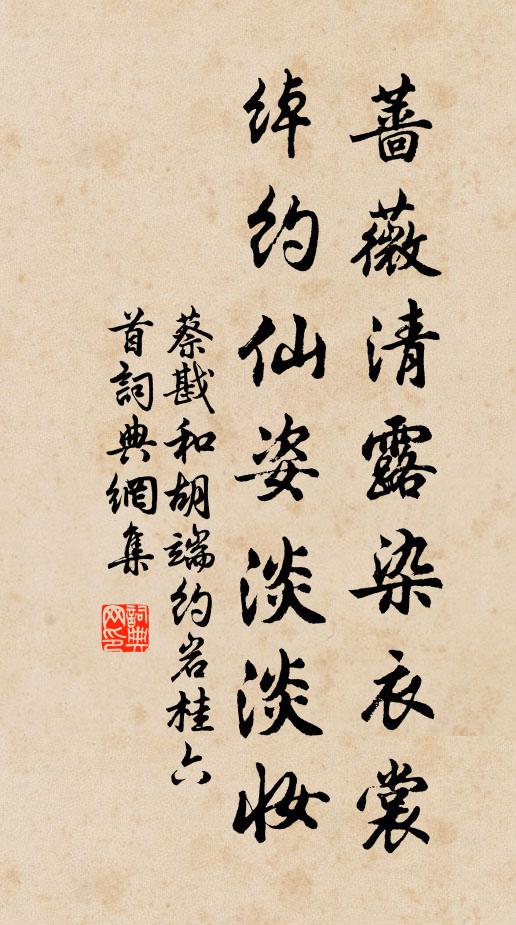 薔薇清露染衣裳
綽約仙姿淡淡妝
蔡戡和胡端約岩桂六
首詞典網集
詞典網印